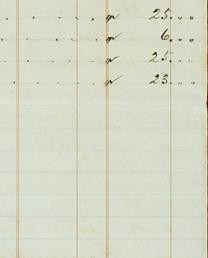 . . " 25. " "
. . . . . " 6. " "
. . . . . " 25. "
. . . . . " 23. " "